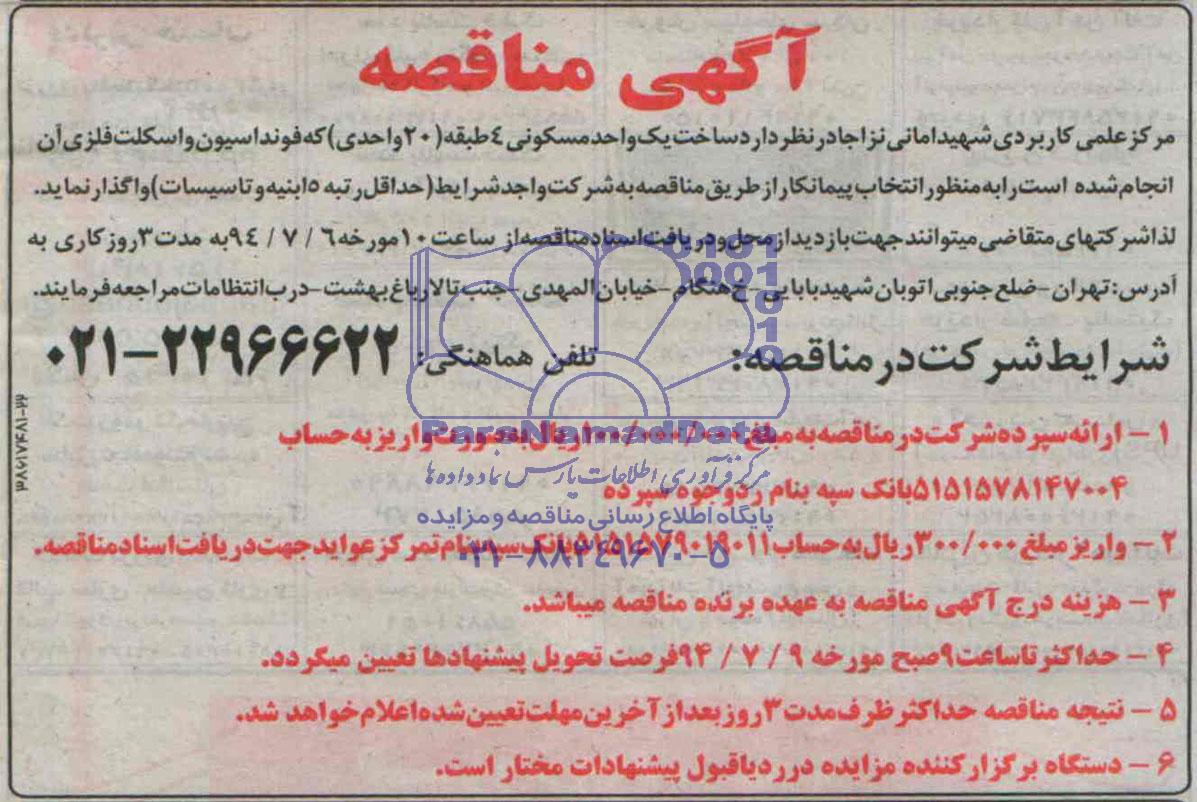 آگهی مناقصه
مرکز علمی کاربردی شهید امانی نزاجا در نظر دارد ساخت یک واحد مسکونی ٤ طبقه (٢٠ واحدی) که فونداسیون واسکلت فلزی آن
انجام شده است را به منظور انتخاب پیمانکار از طریق مناقصه به شرکت واجد شرایط (حداقل رتبه ٥ ابنیه و تاسیسات) واگذار نماید.
لذا شرکتهای متقاضی میتوانند جهت بازدید از محل و دریافت اسناد مناقصه از ساعت ١٠ مورخه ٦ / ٧ / ٩٤ به مدت ٣ روز کاری به
آدرس: تهران - ضلع جنوبی اتوبان شهید بابایی - خ هنگام - خیابان المهدی - جنب تالار باغ بهشت - درب انتظامات مراجعه فرمایند.
شرایط شرکت در مناقصه: تلفن هماهنگی: ۲۲۹۶۶۶۲۲-۰۲۱
۱ - ارائه سپرده شرکت در مناقصه به مبلغ ریال بصورت واریز به حساب
۵۱۵۱۵۷۸۱۴۷۰۰۴ بانک سپه بنام رد وجوه سپرده
۲ - واریز مبلغ ۳۰۰/۰۰۰ ریال به حساب بانک سپه بنام تمرکز عواید جهت دریافت اسناد مناقصه.
۳ - هزینه درج آگهی مناقصه به عهده برنده مناقصه میباشد.
۴ - حداکثر تا ساعت ۹ صبح مورخه ۹ / ۷ / ۹۴ فرصت تحویل پیشنهادها تعیین میگردد.
۵ - نتیجه مناقصه حداکثر ظرف مدت ۳ روز بعد از آخرین مهلت تعیین شده اعلام خواهد شد.
۶ - دستگاه برگزار کننده مزایده در رد یا قبول پیشنهادات مختار است.
ParsNamadData
مرکز فرآوری اطلاعات پارس نماد داده ها
پایگاه اطلاع رسانی مناقصه و مزایده
۰۲۱-۸۸۳۴۹۶۷۰-۵